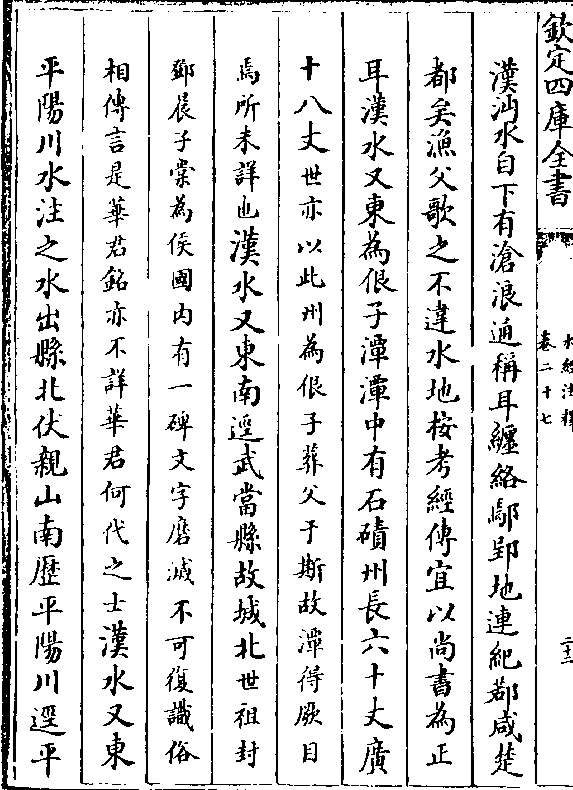 欽定四庫全書
水經注釋
卷二十七
二十二
漢沔水自下有滄浪通稱耳纒絡鄢郢地連紀鄀咸楚
都矣漁父歌之不違水地按考經傳宜以尚書為正
耳漢水又東為佷子潭潭中有石磧州長六十丈廣
十八丈世亦以此州為佷子葬父于斯故潭得厥目
焉所未詳也漢水又東南逕武當縣故城北世祖封
鄧晨子棠為侯國内有一碑文字磨滅不可復識俗
相傳言是華君銘亦不詳華君何代之士漢水又東
平陽川水注之水出縣北伏親山南歷平陽川逕平